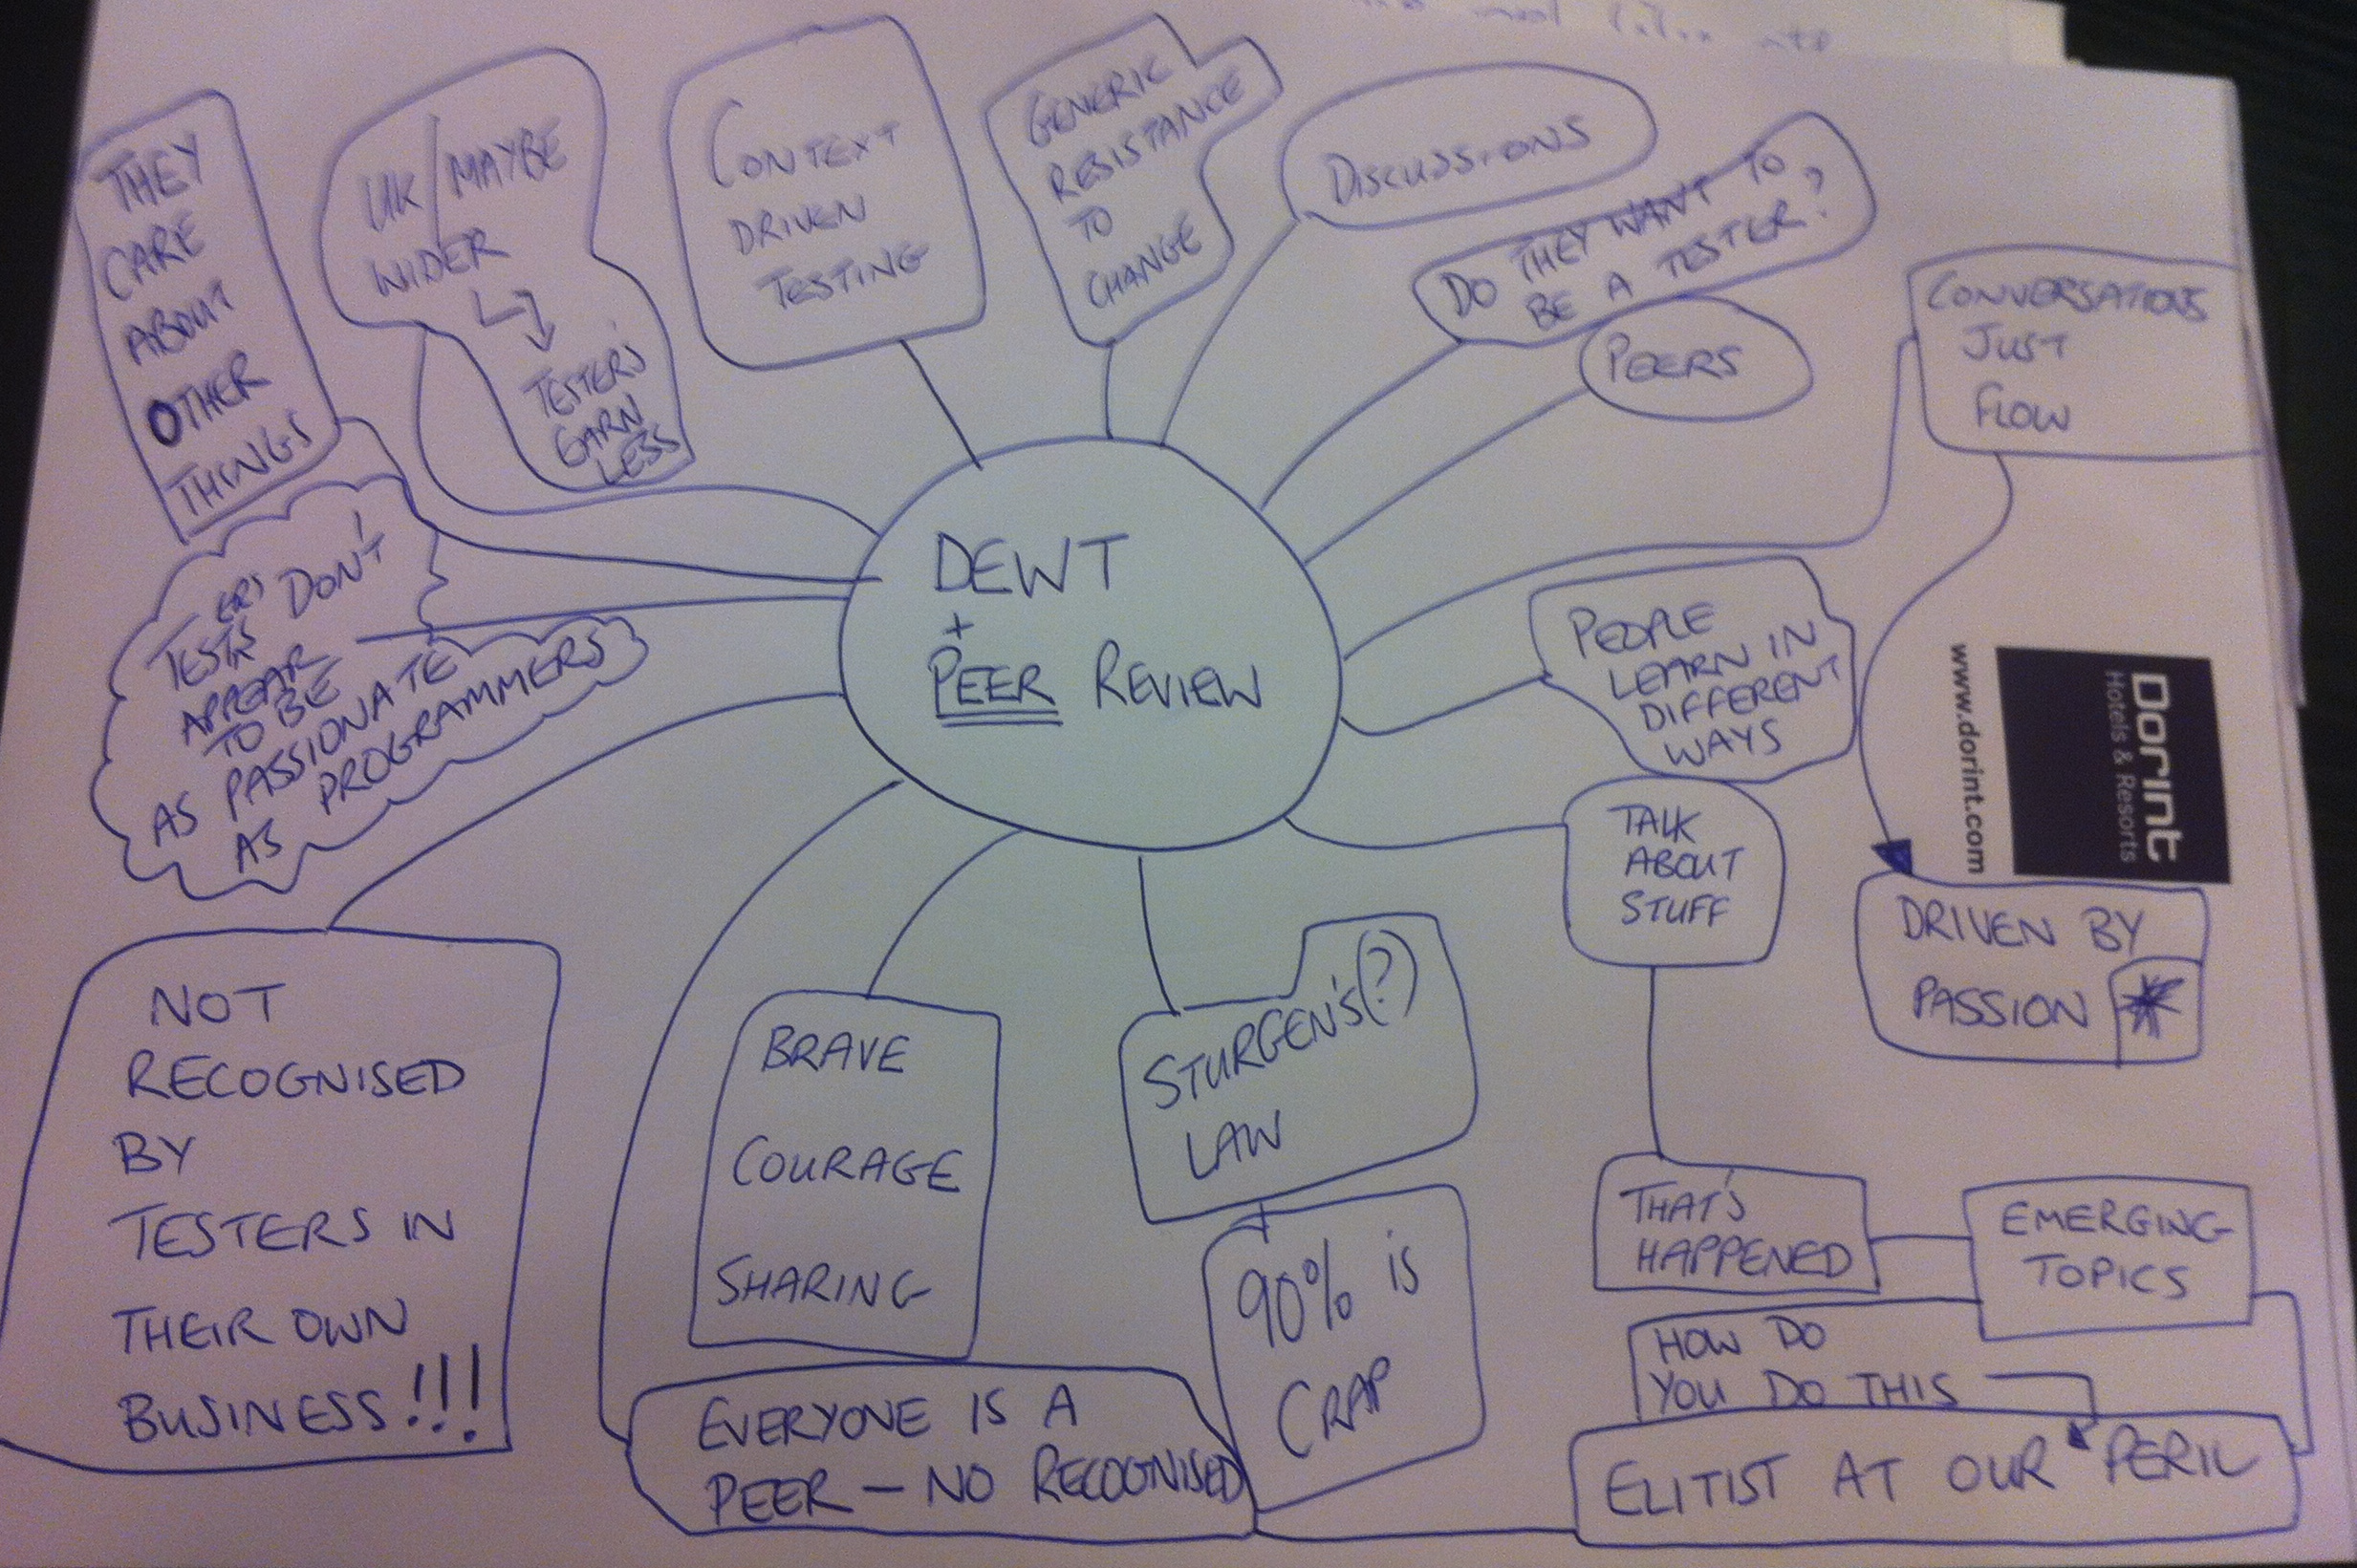 THEY
CARE
ABOUT
OTHER
THINGS
UK/MAYBE
WIDER
TESTERS
EARN
LESS
CONTEXT
DRIVEN
TESTING
GENERIC
RESISTANCE
TO
CHANGE
DISCUSSIONS
DO THEY WANT TO
BE A TESTER?
PEERS
CONVERSATIONS
JUST
FLOW
DEWT
+
PEER REVIEW
TESTERS DON'T
APPEAR
TO BE
AS PASSIONATE
AS PROGRAMMERS
PEOPLE
LEARN IN
DIFFERENT
WAYS
Dorint
Hotels & Resorts
www.dorint.com
TALK
ABOUT
STUFF
DRIVEN BY
PASSION *
NOT
RECOGNISED
BY
TESTERS IN
THEIR OWN
BUSINESS!!!
BRAVE
COURAGE
SHARING
STURGEN'S(?)
LAW
90% is
CRAP
THAT'S
HAPPENED
EMERGING
TOPICS
HOW DO
YOU DO THIS
EVERYONE IS A
PEER – NO RECOGNISED
ELITIST AT OUR PERIL